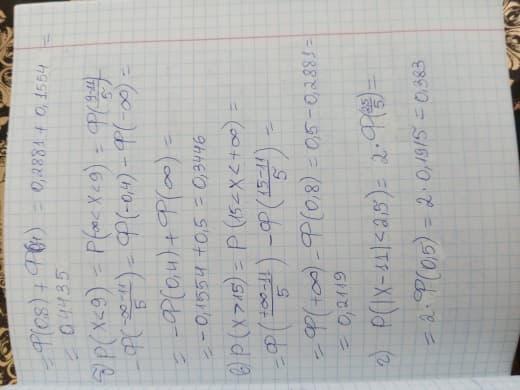 = Ф(0,8) + Ф(0,4) = 0,2881 + 0,1554 =
= 0,4435
б) P(X<9) = P(∞<X<9) = Ф(9-11/5)
- Ф(-∞-11/5) = Ф(-0,4) - Ф(-∞) =
= -Ф(0,4) + Ф(∞) =
= -0,1554 + 0,5 = 0,3446
в) P(X>15) = P(15<X<+∞) =
= Ф(+∞-11/5) - Ф(15-11/5) =
= Ф(+∞) - Ф(0,8) = 0,5 - 0,2881 =
= 0,2119
г) P(|X-11|<2,5) = 2·Ф(2,5/5) =
= 2·Ф(0,5) = 2·0,1915 = 0,383